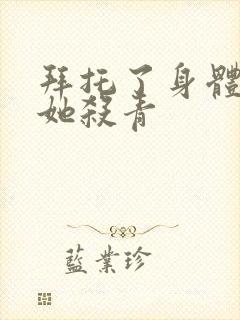 拜托了身體
她殺青
藍業珍